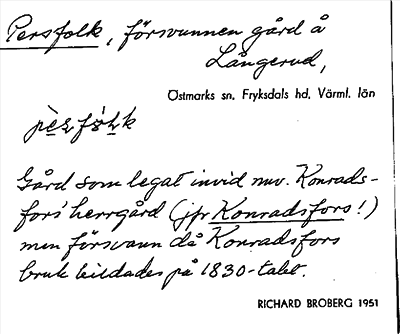 Persfolk, försvunnen gård å
Långerud,
Östmarks sn, Fryksdals hd, Värml. län
Gård som legat invid nuv. Konrads-
fors' herrgård (jfr Konradsfors!)
men försvann då Konradsfors
bruk bildades på 1830-talet.
RICHARD BROBERG 1951